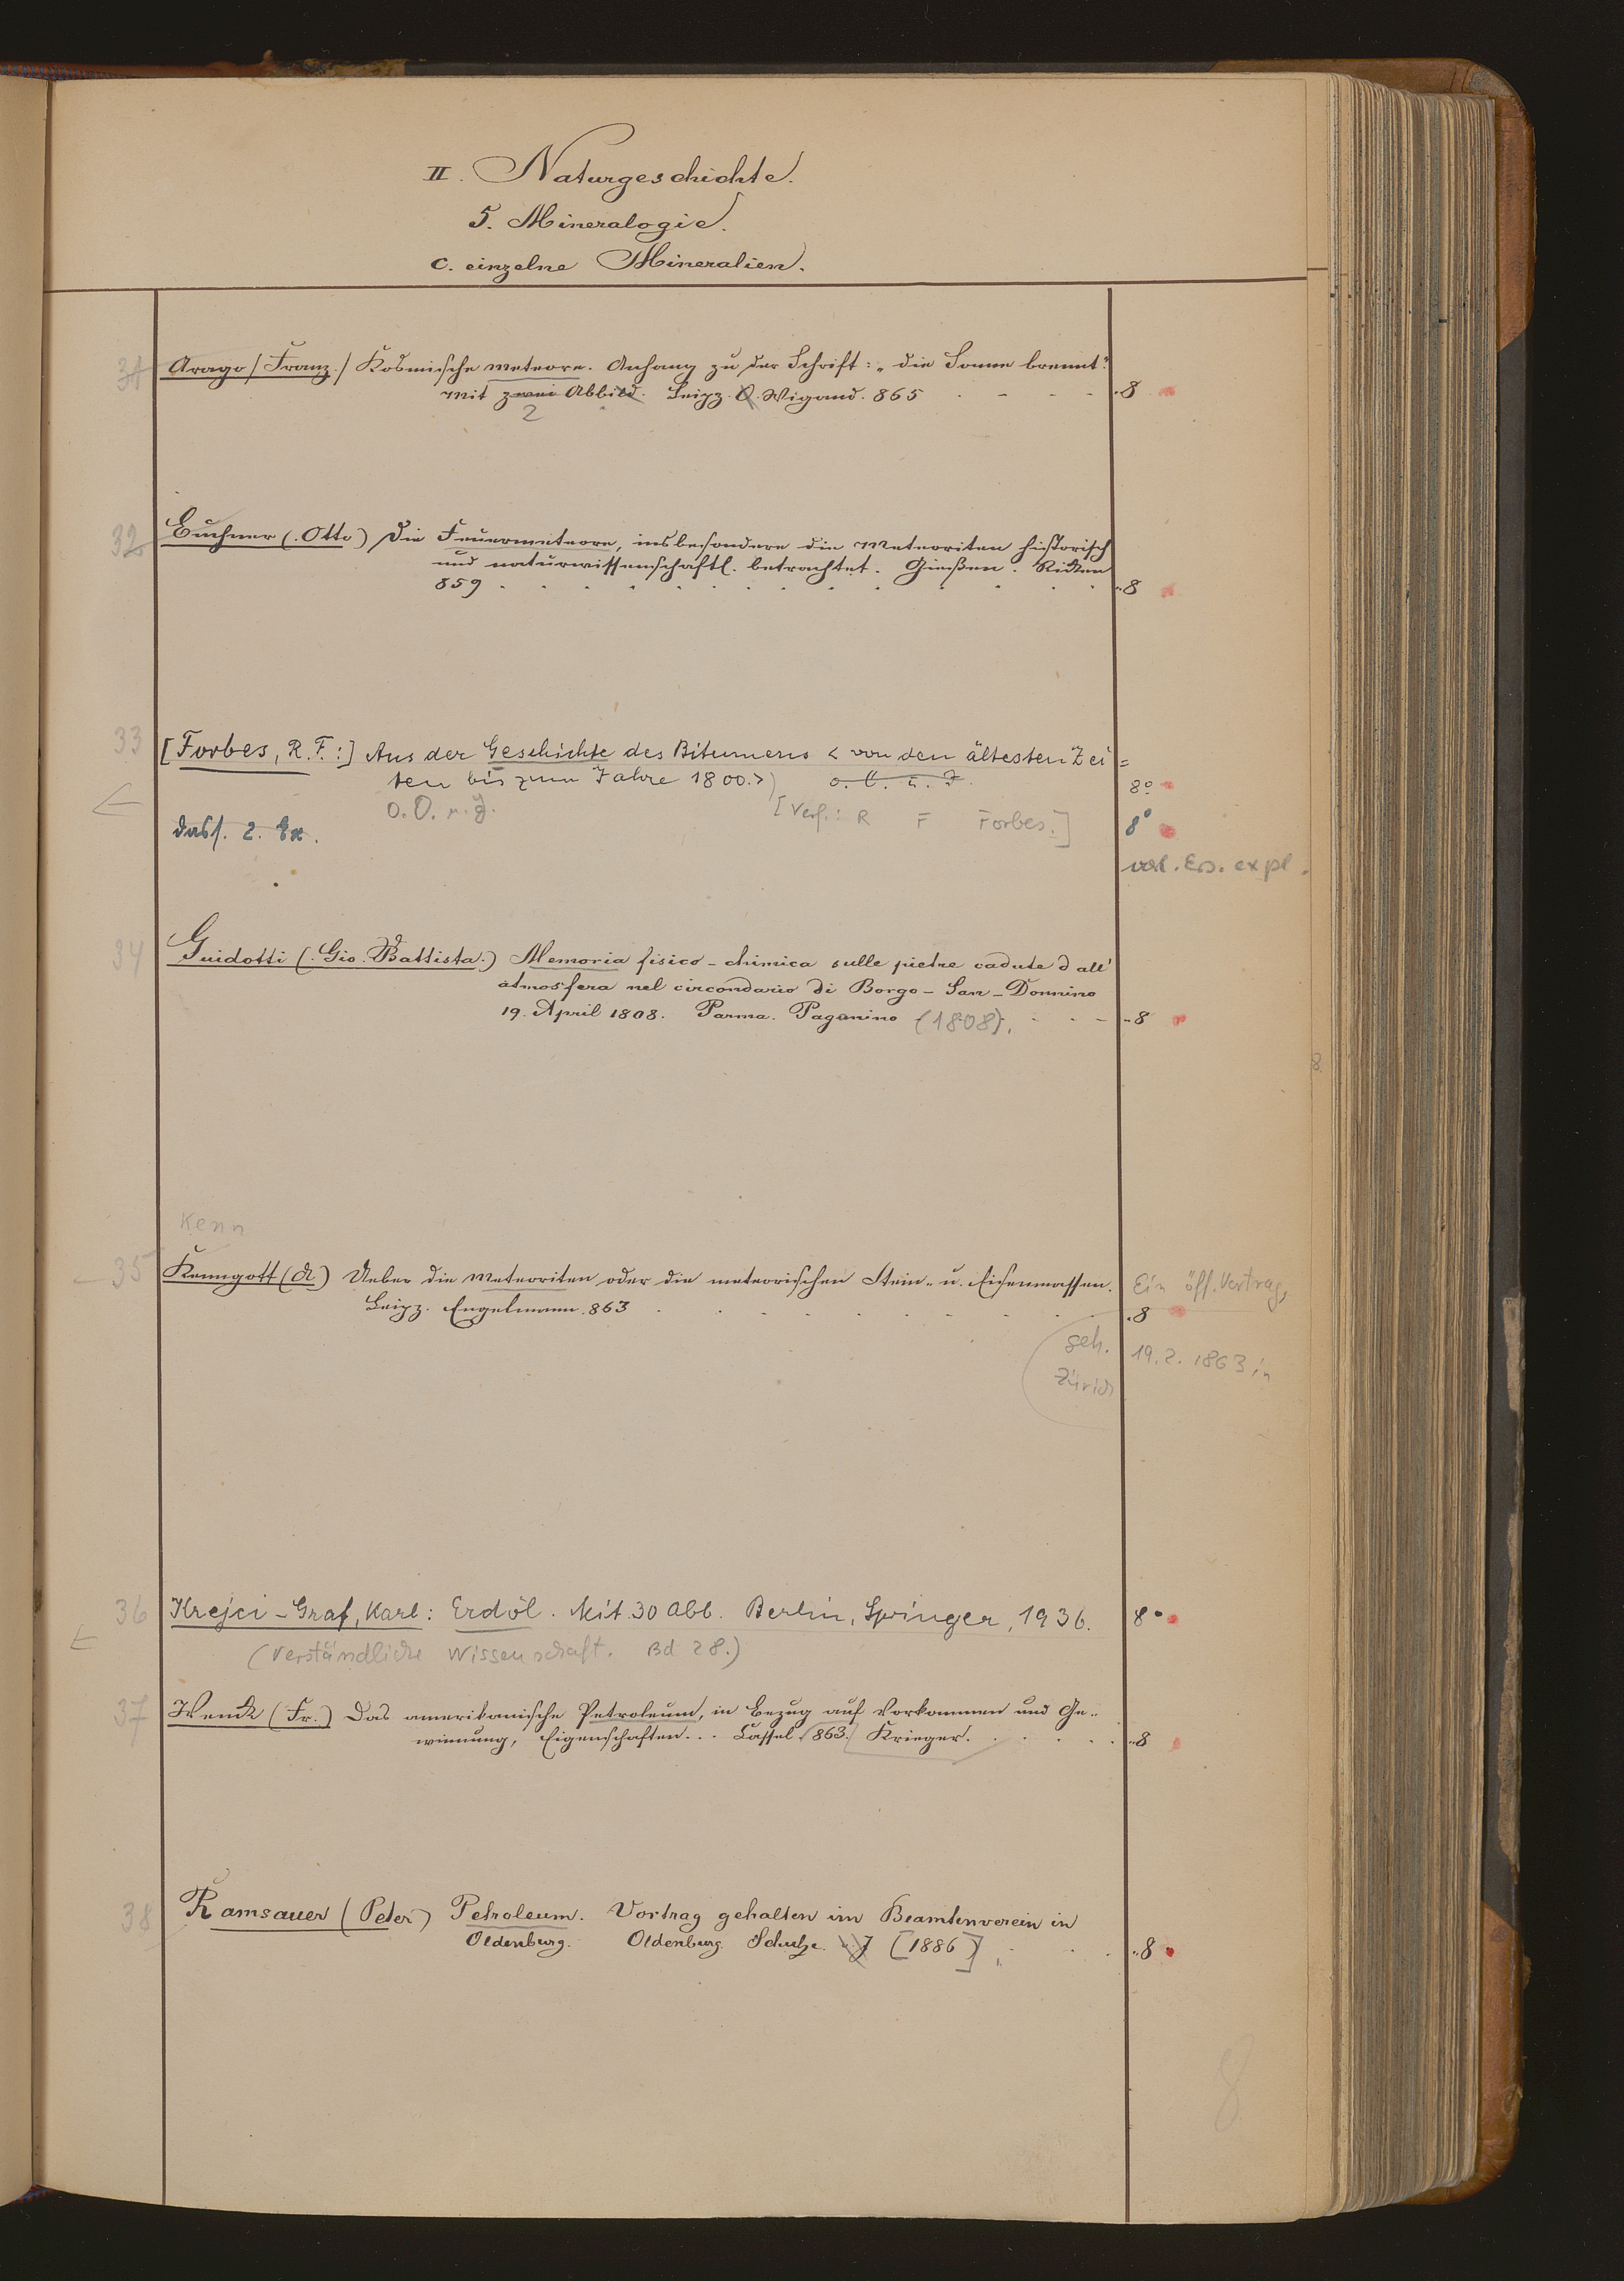 II. Naturgeschichte.
5. Mineralogie.
c. einzelne Mineralien.
31 Arago / Franz. / Kosmische Meteore. Anhang zu der Schrift: „die Sonne brennt."
mit zwei Abbild. Leipz. O. Wigand. 865 .8
2
32 Buchner (. Otto) Die Feuermeteore, insbesondere die Meteoriten historisch
und naturwissenschaftl. betrachtet. Gießen. Ricker
859 . . . . . . . . . . . . . ..8
33 [Forbes, R. F.:] Aus der Geschichte des Bitumens < von den ältesten Zei=
ten bis zum Jahre 1800.>) o. O. u. J. 8º
O. O. u. J. [Verf.: R F Forbes.]
dass. 2. Ex. 8º
Ers. expl.
34 Guidotti (. Gio. Battista.) Memoria fisico-chimica sulle pietre cadute dall'
atmosfera nel circondario di Borgo-San-Donnino
19. April 1808. Parma. Paganino (1808). - . - - ..8
Kenn
35 Kenngott (A.) Ueber die Meteoriten oder die meteorischen Stein- u. Eisenmassen. Ein öff. Vortrag,
Leipz. Engelmann. 863 . . . . . . . . . .8
geh. 19. 2. 1863 in
Zürich
36 Krejci-Graf, Karl: Erdöl. Mit 30 Abb. Berlin, Springer, 1936. 8º
(Verständliche Wissenschaft. Bd 28.)
37 Wenck (Fr.) Das amerikanische Petroleum, in Bezug auf Vorkommen und Ge-
winnung, Eigenschaften... Cassel 863. Krieger. . . . . . ..8
38 Ramsauer (Peter) Petroleum. Vortrag gehalten im Beamtenverein in
Oldenburg. Oldenburg. Schulze. [1886] . . . ..8
8